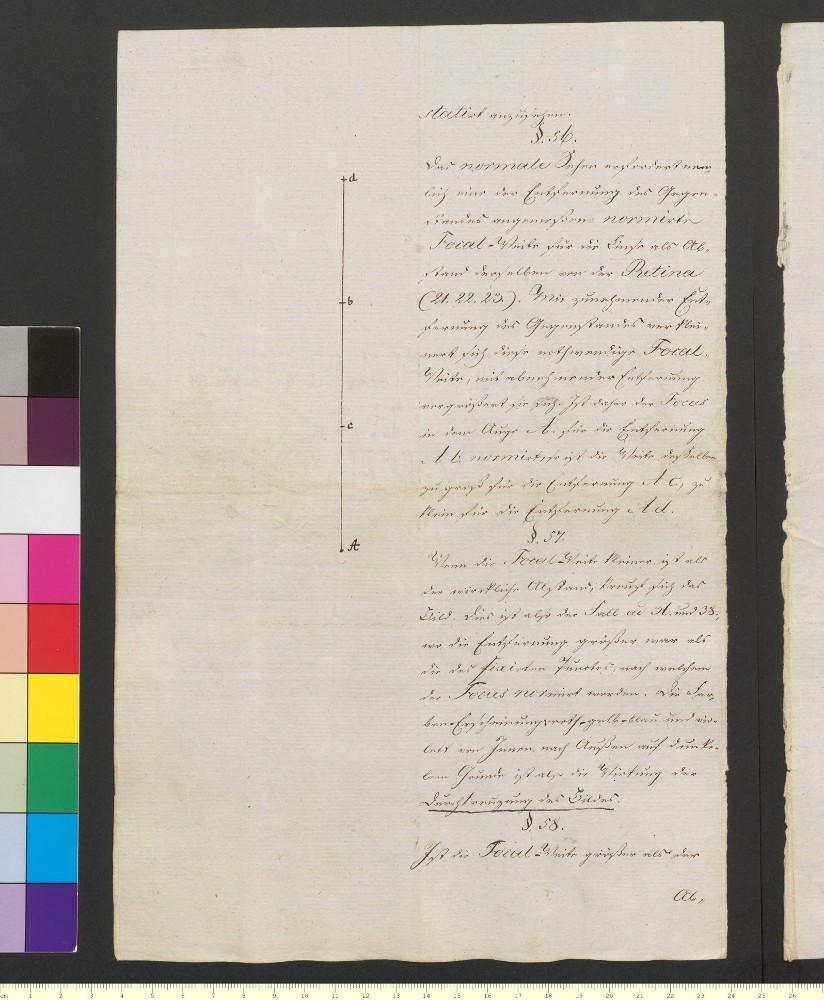 statirt anzusehen.
§. 56.
Das normale Sehen erfordert nem̅
lich eine der Entfernung des Gegen-
standes angemeßene normirte
Focal-Weite für die Linse als Ab-
stand derselben von der Retina
(21. 22. 23.). Mit zunehmender Ent-
fernung des Gegenstandes verklei-
nert sich diese nothwendige Focal-
Weite, mit abnehmender Entfernung
vergrößert sie sich. Ist daher der Focus
in dem Auge A. für die Entfernung
A b normirt, so ist die Weite desselben
zu groß für die Entfernung A c, zu
klein für die Entfernung A d.
§. 57.
Wenn die Focal-Weite kleiner ist als
der wirckliche Abstand, kreuzt sich das
Bild. Dies ist also der Fall ad 31. und 33.,
wo die Entfernung größer war als
die des fixirten Punctes, nach welchem
der Focus normirt worden. Die Far-
ben-Erscheinung roth-gelb-blau und vio-
lett von Innen nach Außen auf dunk-
lem Grunde ist also die Wirkung der
Durchkreuzung des Bildes.
§. 58.
Ist die Focal-Weite größer als der
Ab-
d
b
c
A